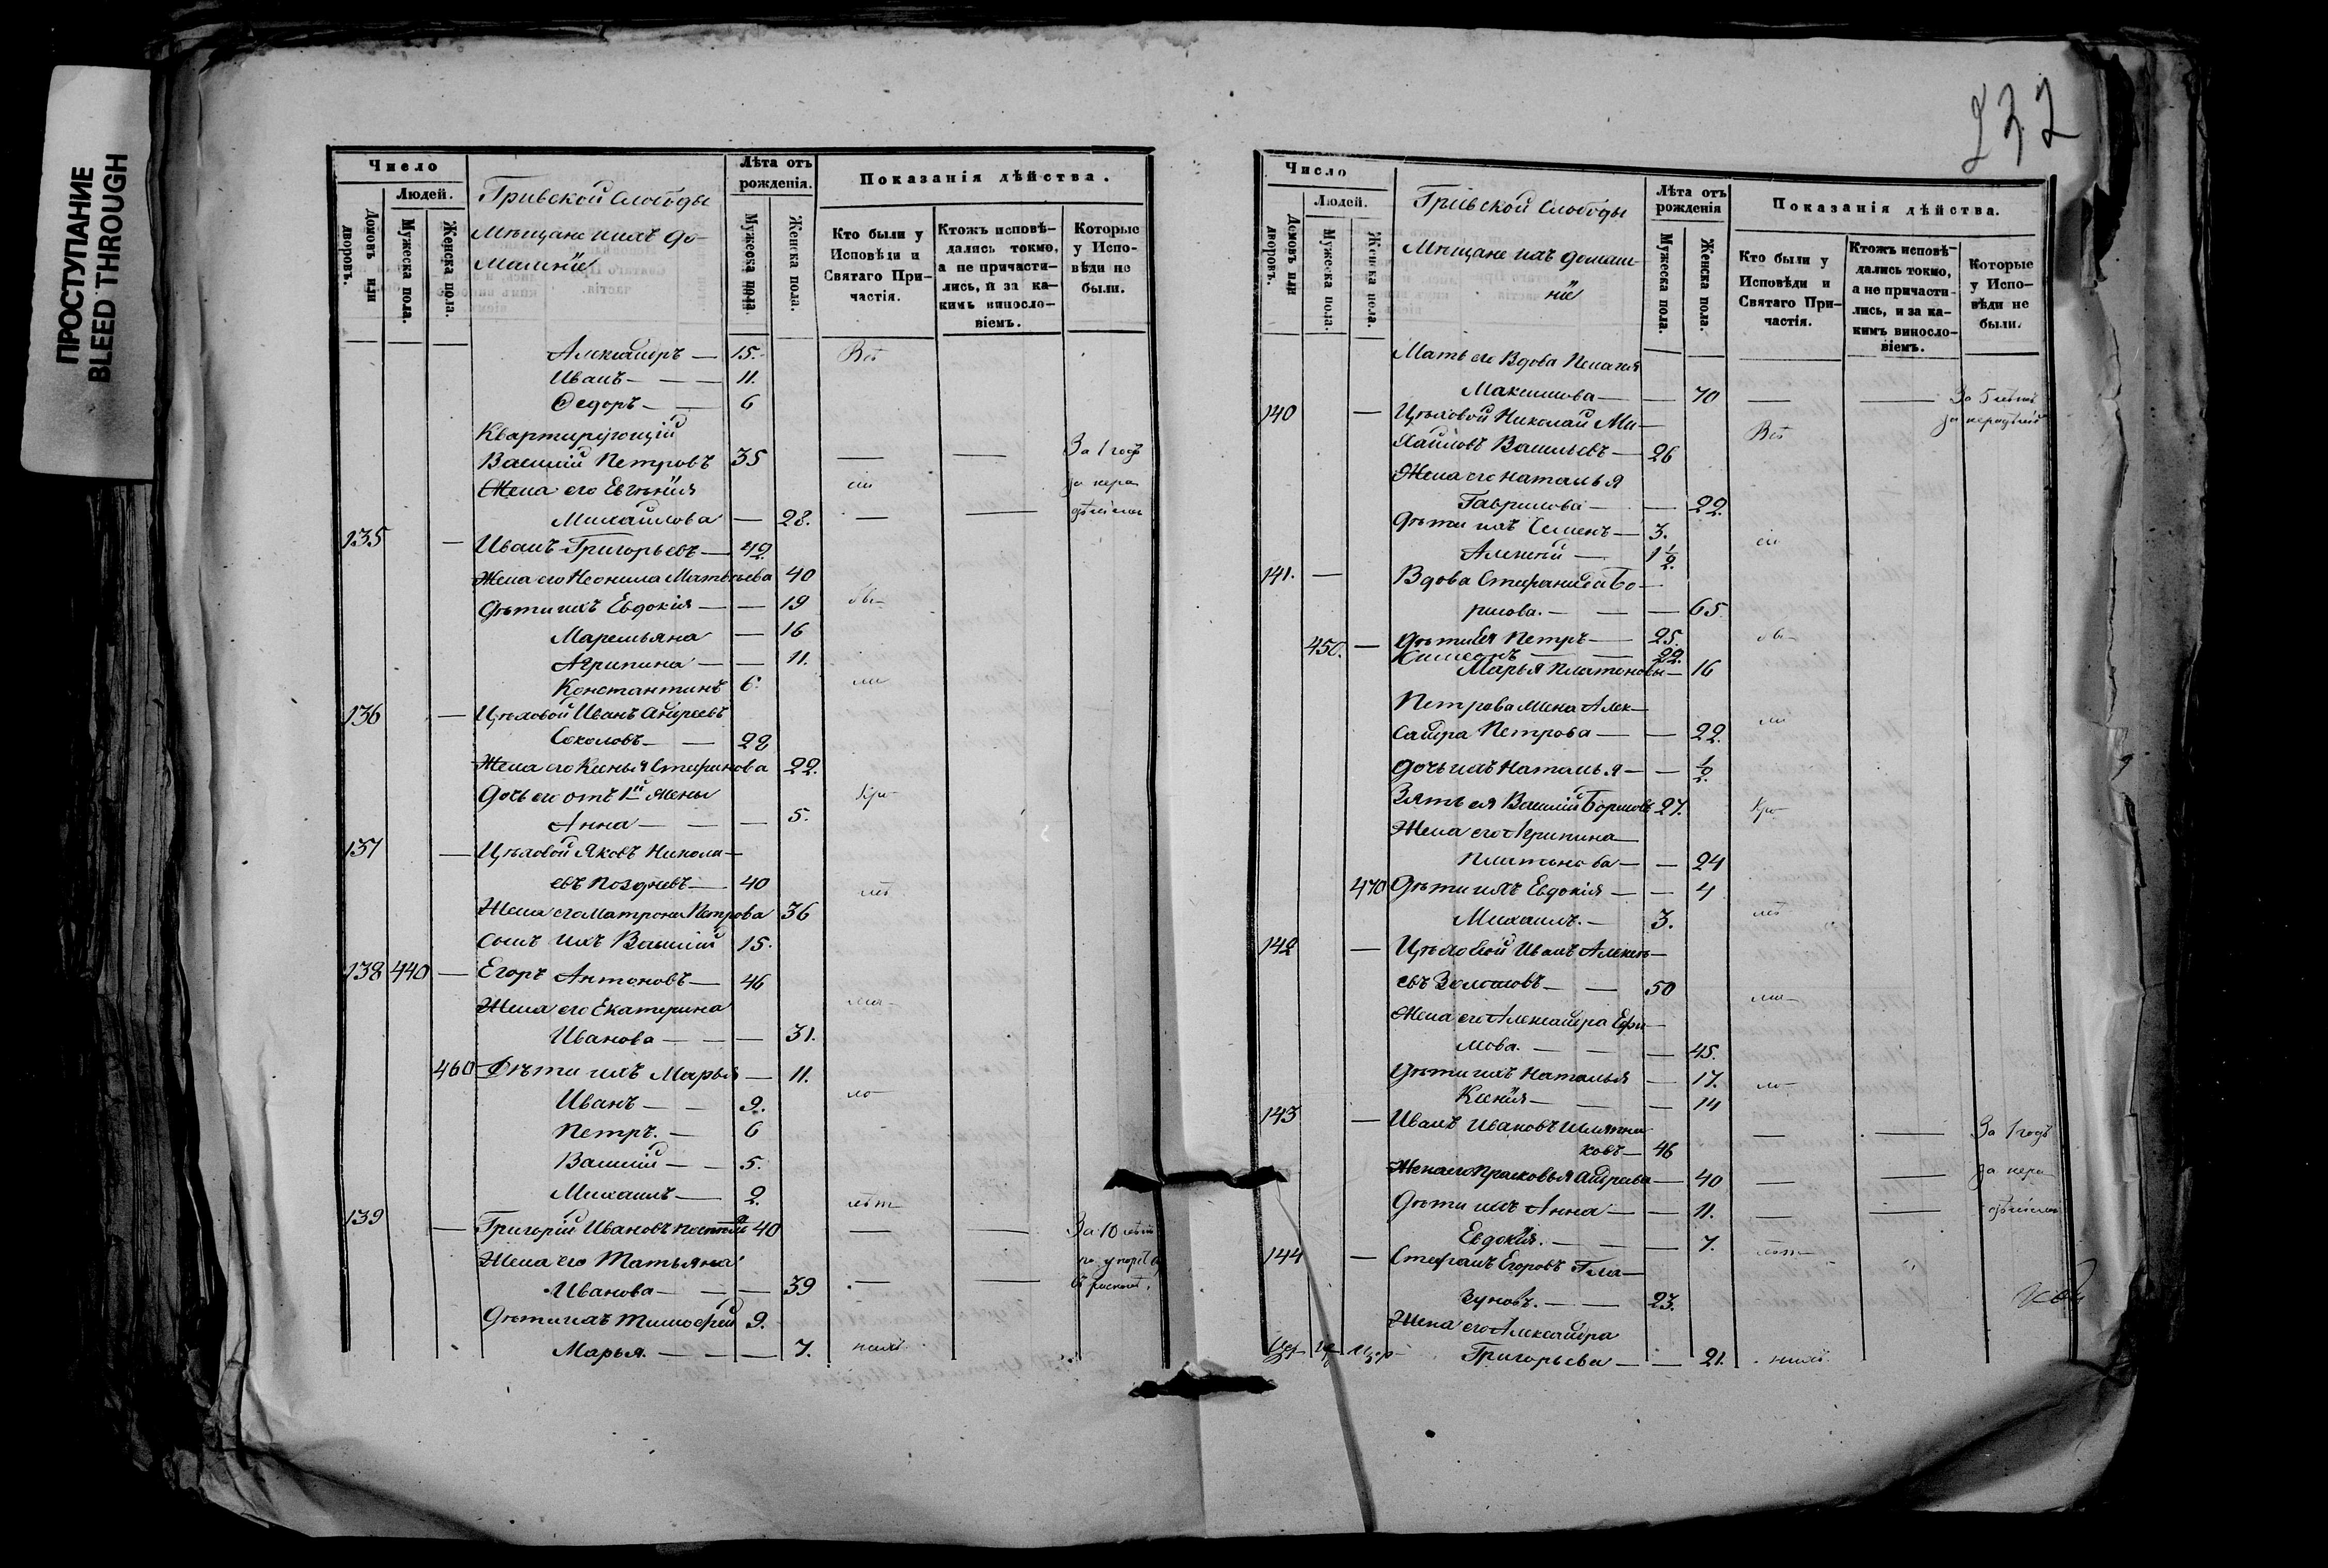 ПРОСТУПАНИЕ
BLEED THROUGH
232
Число
Людей.
Домовъ или дворовъ.
Мужеска пола.
Женска пола.
Гривской Слободы
Мѣщане и ихъ до-
машніе
Лѣта отъ рожденія.
Мужеска пола
Женска пола.
Показанія дѣйства.
Кто были у Исповѣди и Святаго При-частія.
Ктожъ исповѣ-дались токмо, а не причасти-лись, и за ка-кимъ виносло-віемъ.
Которые у Испо-вѣди не были.
Александръ — 15. Всѣ
Иванъ — — 11.
Федоръ — 6
Квартирующій
Василій Петровъ 35 — — За 1 годъ
Жена его Евгенія сіи за нера
Михайлова — 28. — — дѣніемъ
135 — Иванъ Григорьевъ — 42
Жена его Неонила Матвѣева 40
Дѣти ихъ Евдокія — — 19
Маремьяна — 16
Агрипина — — 11.
Константинъ 6.
136 — Цѣховой Иванъ Андреевъ
Соколовъ — — 28
Жена его Ксенья Стефанова 22.
Дочь его отъ 1й жены
Анна — — — 5.
137 — Цѣховой Яковъ Никола-
евъ Поздневъ — 40
Жена его Матрона Петрова 36
Сынъ ихъ Василій 15.
138 440 — Егоръ Антоновъ — 46
Жена его Екатерина
Иванова — — — 31.
460 Дѣти ихъ Марья — 11.
Иванъ — — 9.
Петръ. — 6
Василій — — 5.
Михаилъ — 2.
139 — Григорій Ивановъ 40 — — За 10 лѣтъ
Жена его Татьяна
Иванова — — — 39 — —
Дѣти ихъ Тимофей 9.
Марья. — — — 7.
Число
Людей.
Домовъ или дворовъ.
Мужеска пола.
Женска пола.
Гривской Слободы
Мѣщане ихъ домаш-
ніе
Лѣта отъ рожденія
Мужеска пола.
Женска пола.
Показанія дѣйства.
Кто были у Исповѣди и Святаго При-частія.
Ктожъ исповѣ-дались токмо, а не причасти-лись, и за ка-кимъ виносло-віемъ.
Которые у Испо-вѣди не были.
Мать его Вдова Пелагія
Максимова — — 70 — — За 5 лѣтъ
140 — Цѣховой Николай Ми- Всѣ за нерадѣніе
хайловъ Васильевъ — 26
Жена его Наталья
Гаврилова — — 22.
Дѣти ихъ Семенъ — 3. сіи
Алексій — 1 1/2
141. — Вдова Стефанида Бо-
рисова. — — — 65
450. — Дѣти ея Петръ — 25.
Симеонъ — — 22.
Марья Платоновы — 16
Петрова жена Алек-
сандра Петрова — — 22.
Дочь ихъ Наталья — — 1/2.
Зять ея Василій Борисовъ 27.
Жена его Агрипина
Платонова — — 24
470 Дѣти ихъ Евдокія — — 4
Михаилъ. — 3.
142 — Цѣховой Иванъ Алексѣ-
евъ — — 50
Жена его Александра Ефи-
мова. — — — 45.
Дѣти ихъ Наталья — 17.
Ксенія — — — 14
143 — Иванъ Ивановъ — — За 1 годъ
ковъ — 46
Жена его Прасковья Андреева — 40 — — за нера
Дѣти ихъ Анна — — 11. — — дѣніемъ
Евдокія. — — — 7.
144 — Стефанъ Егоровъ Гла-
зуновъ. — — 23.
Жена его Александра
Григорьева — — 21.